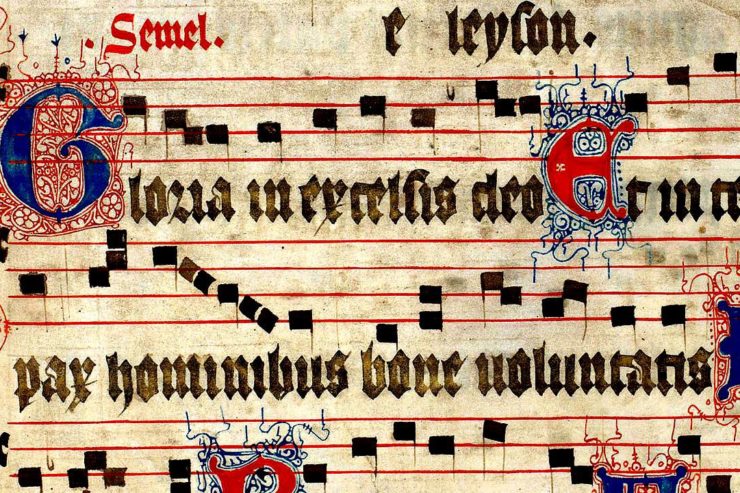 . Semel. e leyson.
Gloria in excelsis deo Et in te
pax hominibus bone uoluntatis